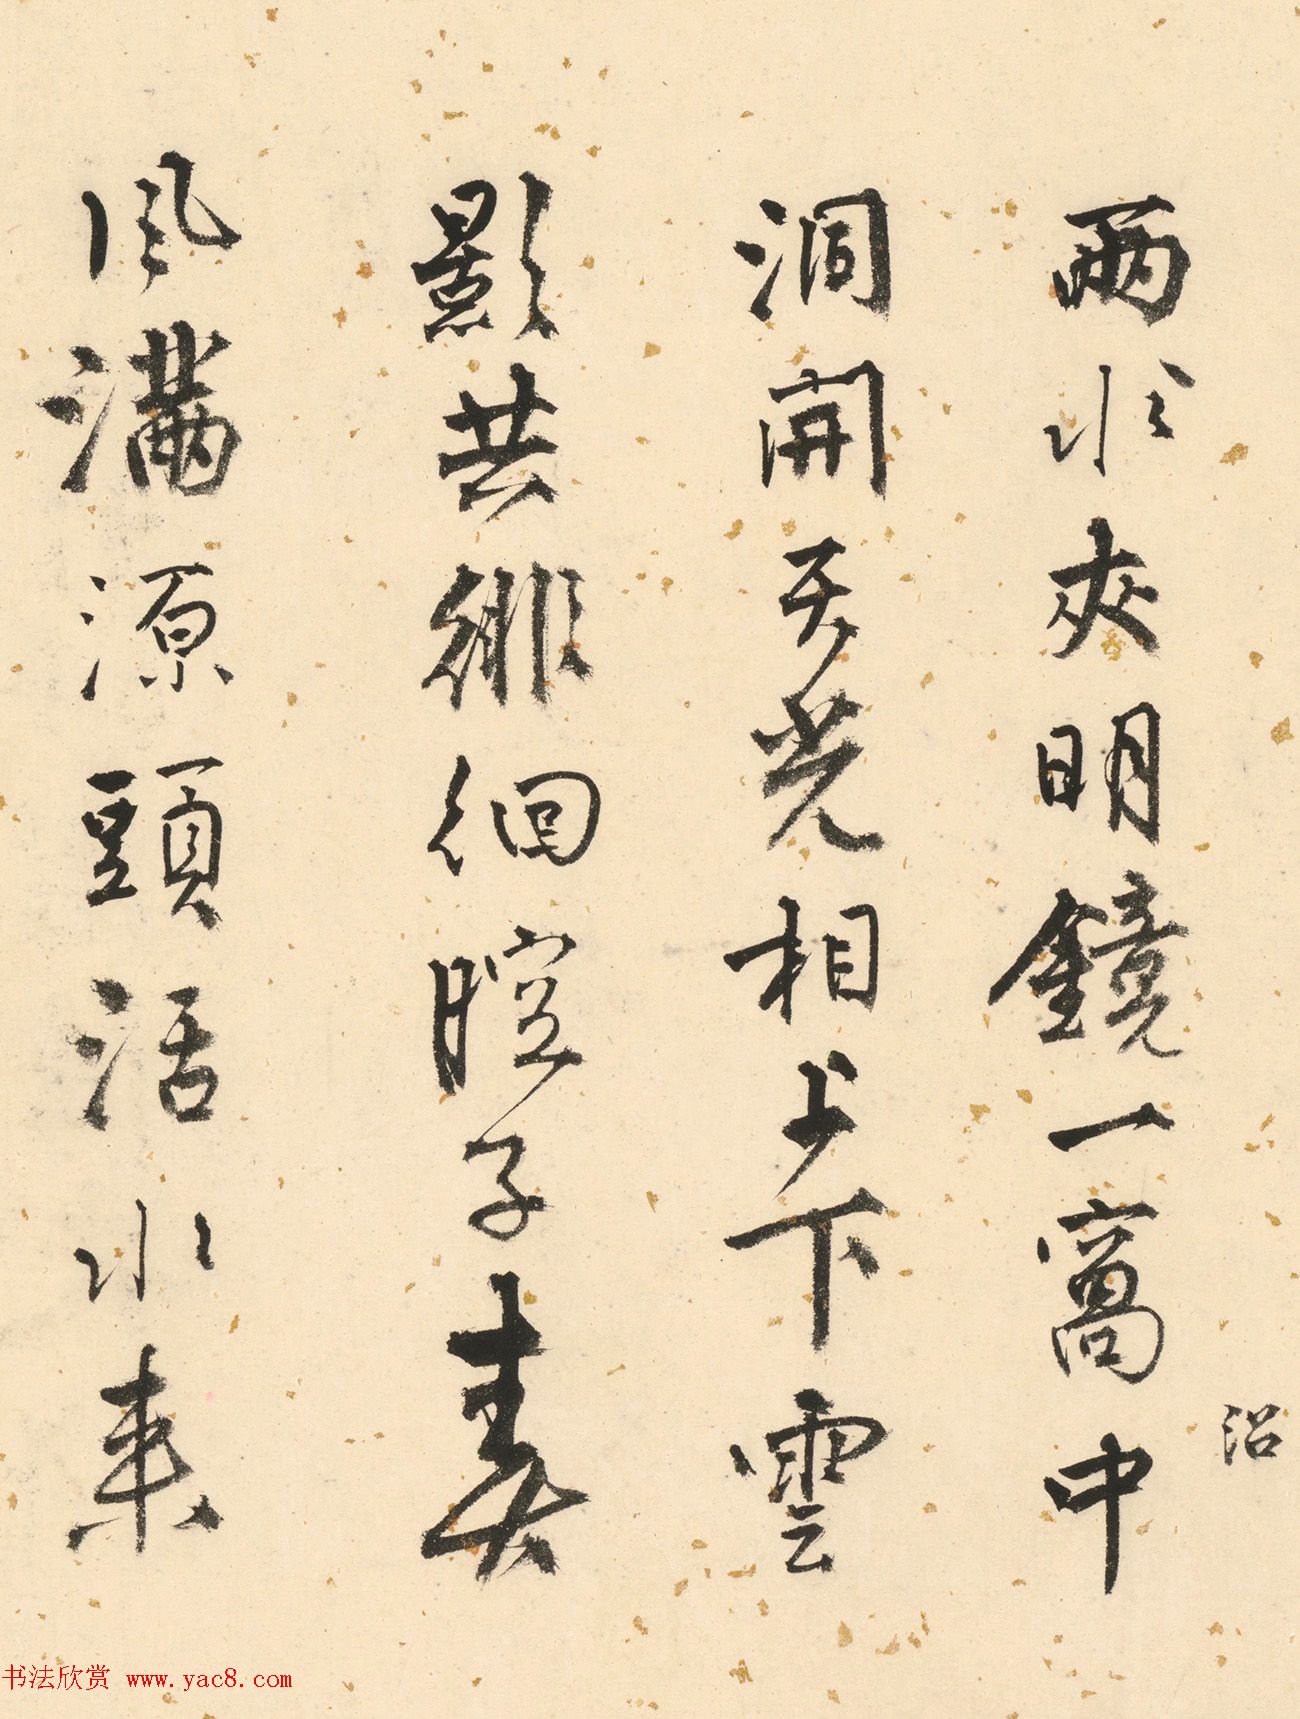 沼
兩水夾明鏡一窩中
洞開天光相上下雲
影共徘徊腔子春
風滿源頭活水來
书法欣赏 www.yac8.com